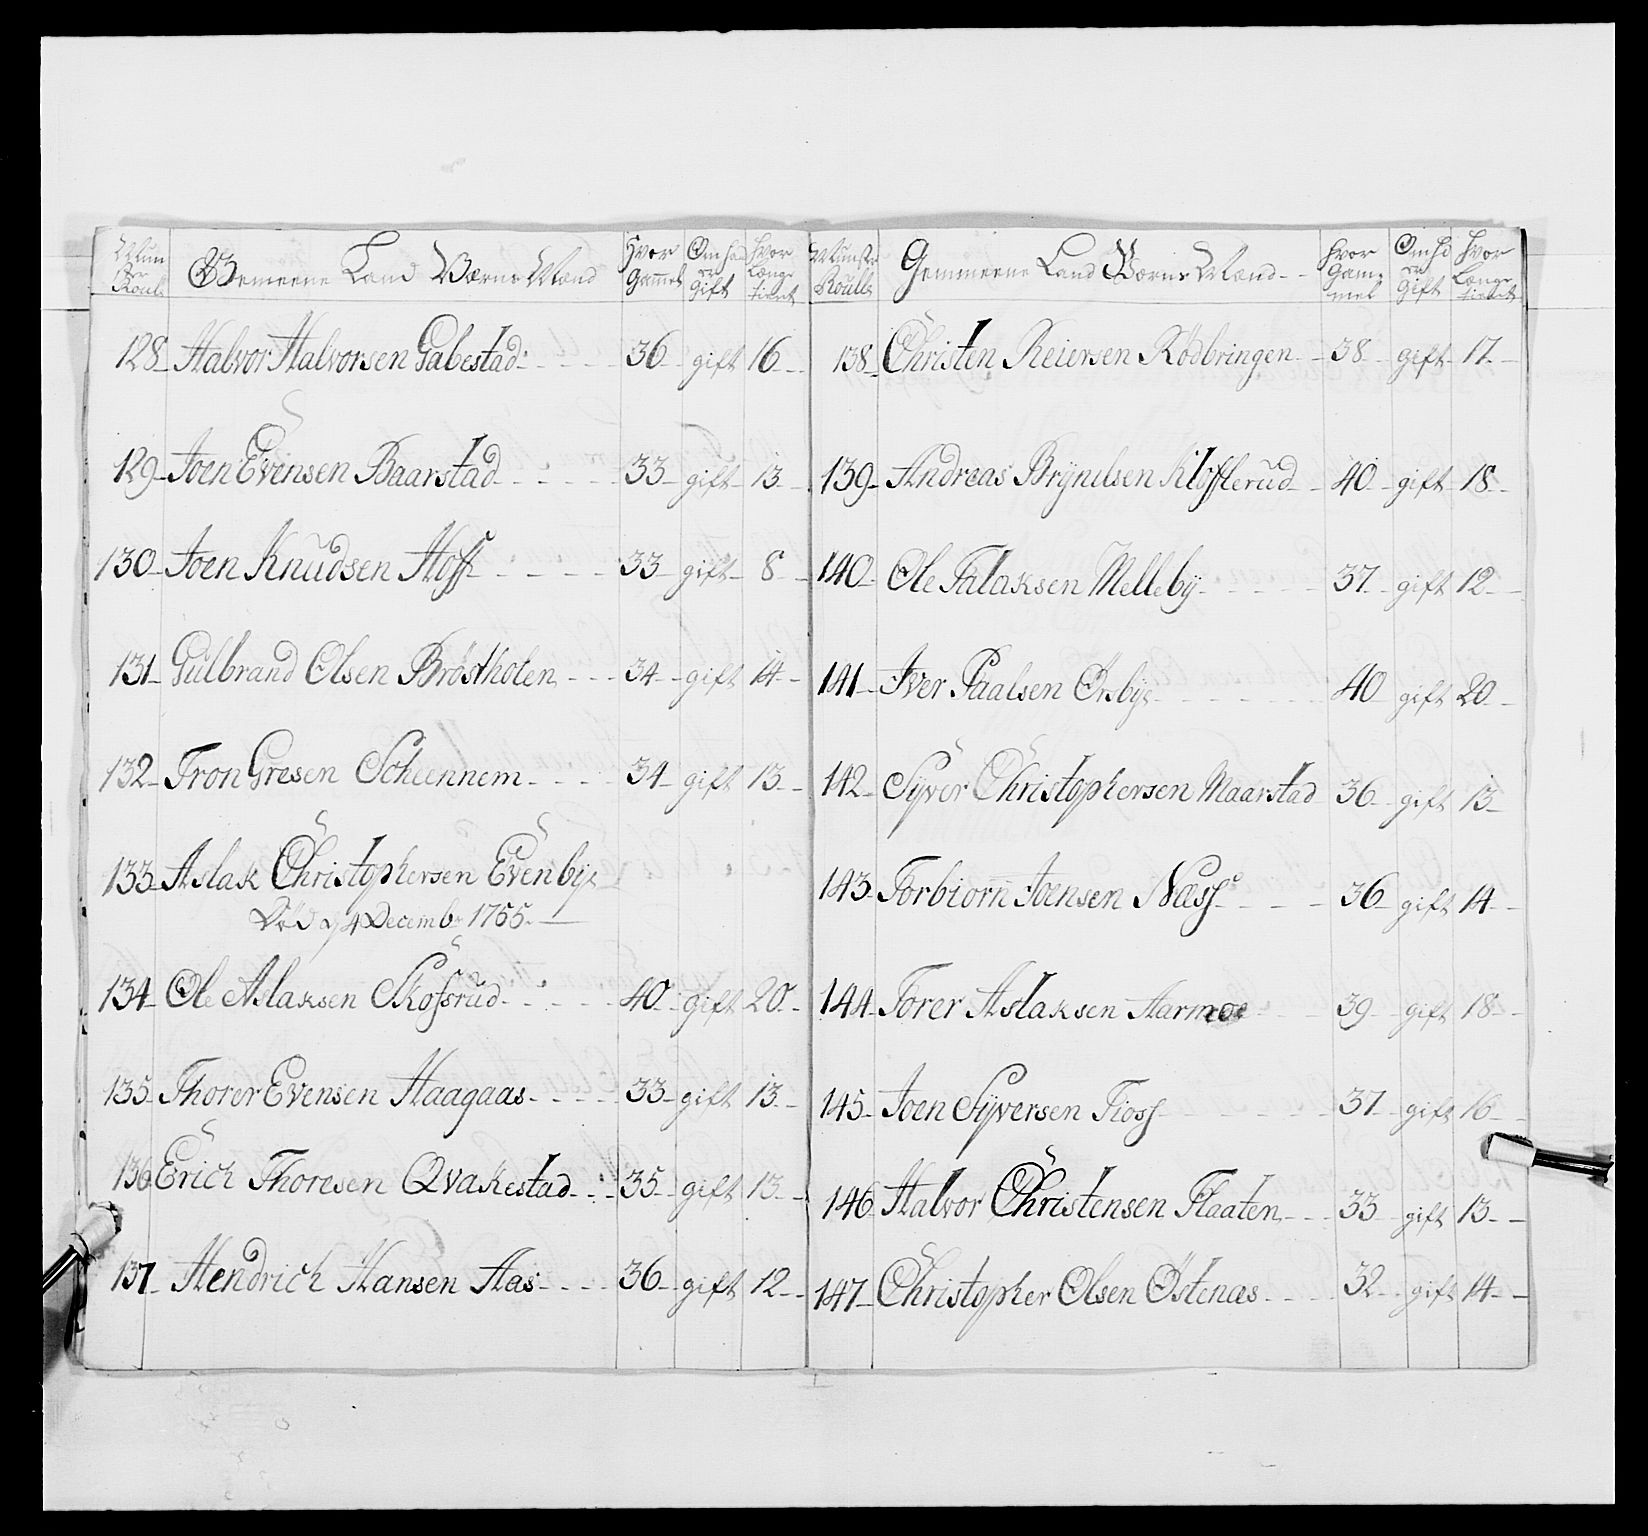 Num Gemeene Land Værns Mand Hvor Om hand Hvor
Roul Gammel er gift Længe tient
128 Halvor Halvorsen Gabestad 36 gift 16
129 Joen Evensen Baarstad 33 gift 13
130 Joen Knudsen Hoff 33 gift 8
131 Gulbrand Olsen Bröstholen 34 gift 14
132 Tron Gresen Scheennem 34 gift 13
133 Aslak Christophersen Evenbÿe
Död d 4 Decembr 1755
134 Ole Aslaksen Skofsrud 40 gift 20
135 Thorer Evensen Haagaas 33 gift 13
136 Erich Thoresen Qvakestad 35 gift 13
137 Hendrich Hansen Aas 36 gift 12
Munstr Gemmeene Land Værns Mand Hvor Om hd Hvor
Roulle Gammel er gift Længe tient
138 Christen Reiersen Rödbringen 38 gift 17
139 Andreas Brÿnilsen Klofterud 40 gift 18
140 Ole Tslaksen Mellebÿ 37 gift 12
141 Iver Paalsen Ousbÿe 40 gift 20
142 Sÿver Christophersen Maarstad 36 gift 13
143 Torbiorn Joensen Næss 36 gift 14
144 Torer Aslaksen Aarmoe 39 gift 18
145 Joen Sÿversen Tioss 37 gift 16
146 Halvor Christensen Flaaten 33 gift 13
147 Christopher Olsen Östenaes 32 gift 14